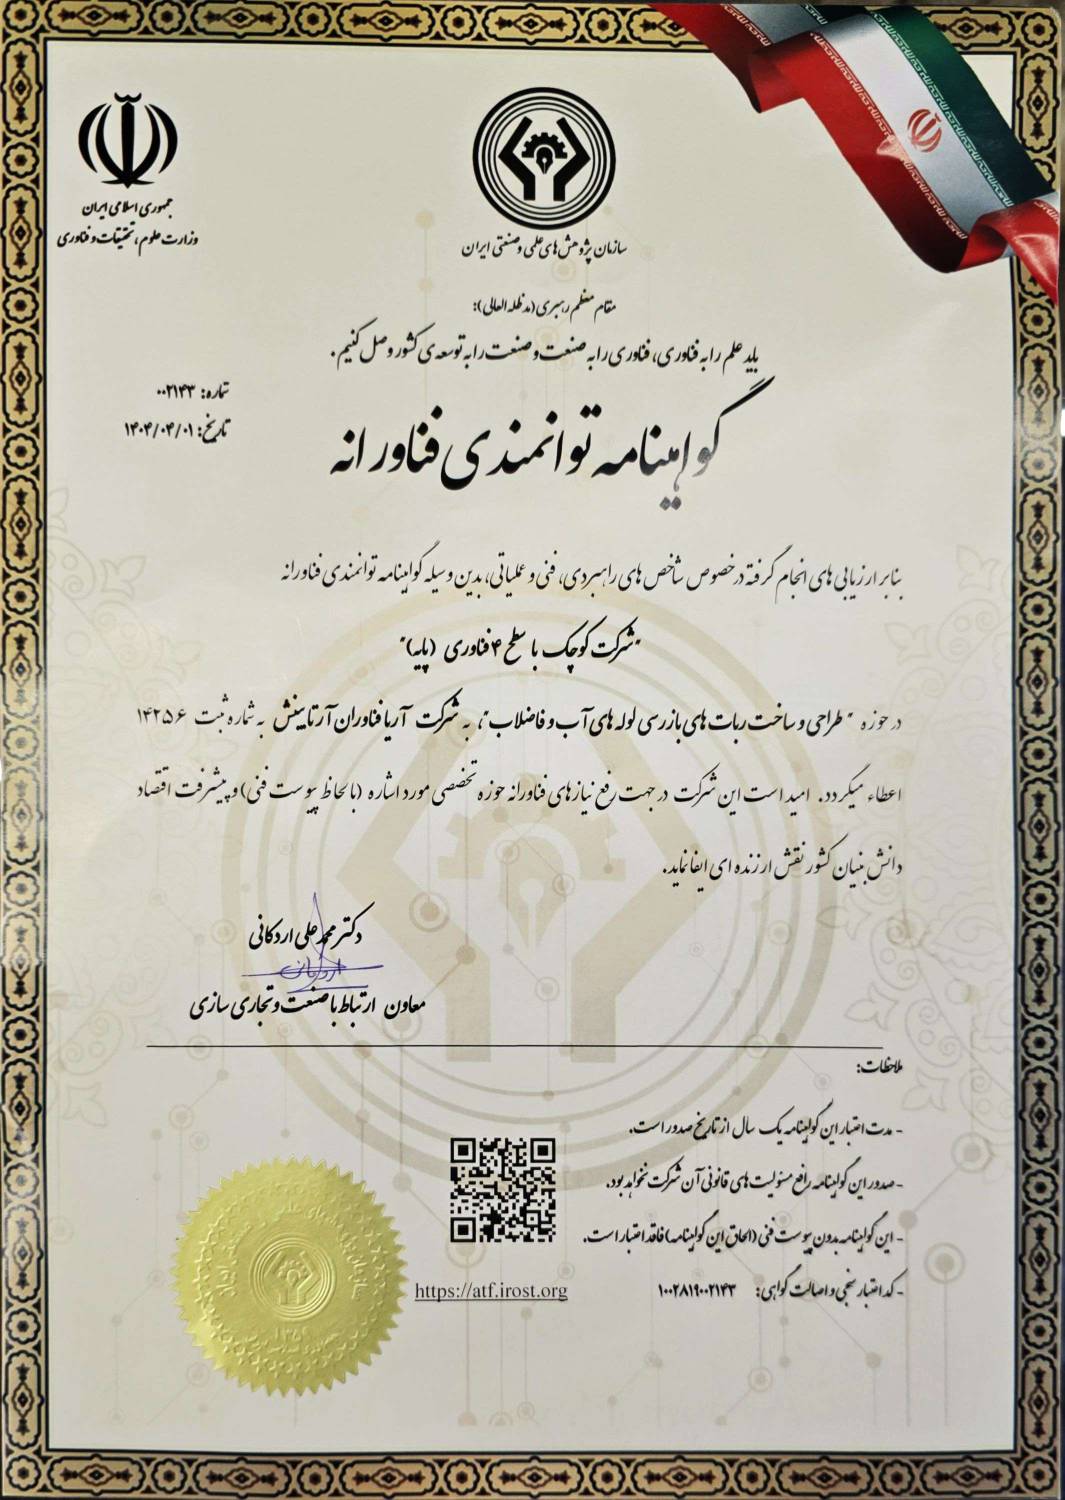 جمهوری اسلامی ایران
وزارت علوم، تحقیقات و فناوری
سازمان پژوهش های علمی و صنعتی ایران
مقام معظم رهبری (مدظله العالی):
باید علم را به فناوری، فناوری را به صنعت و صنعت را به توسعه ی کشور وصل کنیم.
شماره: ۰۰۲۱۴۳
تاریخ: ۱۴۰۴/۰۴/۰۱
گواهینامه توانمندی فناورانه
بنابر ارزیابی های انجام گرفته درخصوص شاخص های راهبردی، فنی و عملیاتی، بدین وسیله گواهینامه توانمندی فناورانه
"شرکت کوچک با سطح ۴ فناوری (پایه)"
در حوزه " طراحی و ساخت ربات های بازرسی لوله های آب و فاضلاب "، به شرکت آریا فناوران آرتا بینش به شماره ثبت ۱۴۲۵۶
اعطاء میگردد. امید است این شرکت در جهت رفع نیازهای فناورانه حوزه تخصصی مورد اشاره (با لحاظ پیوست فنی) و پیشرفت اقتصاد
دانش بنیان کشور نقش ارزنده ای ایفا نماید.
دکتر محمدعلی اردکانی
معاون ارتباط با صنعت و تجاری سازی
ملاحظات:
- مدت اعتبار این گواهینامه یک سال از تاریخ صدور است.
- صدور این گواهینامه رافع مسئولیت های قانونی آن شرکت نخواهد بود.
- این گواهینامه بدون پیوست فنی (الحاق این گواهینامه) فاقد اعتبار است.
- کد اعتبار سنجی و اصالت گواهی: ۱۰۰۲۸۱۹۰۰۲۱۴۳
https://atf.irost.org
۱۳۵۹